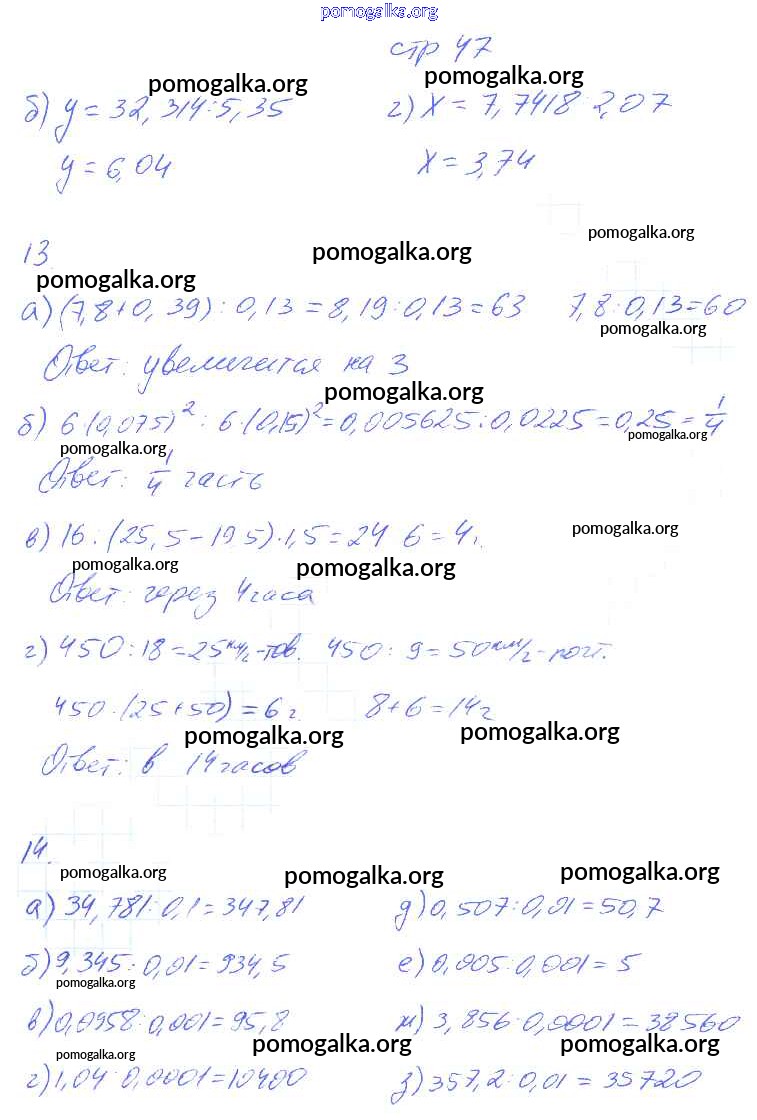 pomogalka.org
стр 47
pomogalka.org pomogalka.org
б) y = 32,314:5,35 г) x = 7,7418 2,07
y = 6,04 x = 3,74
pomogalka.org
13 pomogalka.org
pomogalka.org
а) (7,8+0,39) : 0,13 = 8,19:0,13=63 7,8:0,13=60
pomogalka.org
Ответ: увеличится на 3
pomogalka.org
б) 6·(0,075)²:6·(0,15)²=0,005625:0,0225=0,25=1/4
pomogalka.org
pomogalka.org
Ответ: 1/4 часть
в) 16:(25,5-19 5)·1,5=24 6=4ч. pomogalka.org
pomogalka.org pomogalka.org
Ответ: через 4часа
г) 450:18=25км/ч-тов. 450: 9=50км/ч-почт.
450·(25+50)=6ч 8+6=14ч
pomogalka.org pomogalka.org
Ответ: в 14часов
14.
pomogalka.org pomogalka.org pomogalka.org
а) 34,781:0,1=347,81 д) 0,507:0,01=50,7
б) 9,345:0,01=934,5 е) 0,005:0,001=5
pomogalka.org
в) 0,0958:0,001=95,8 ж) 3,856:0,0001=38560
pomogalka.org pomogalka.org pomogalka.org
г) 1,04:0,0001=10400 з) 357,2:0,01=35720